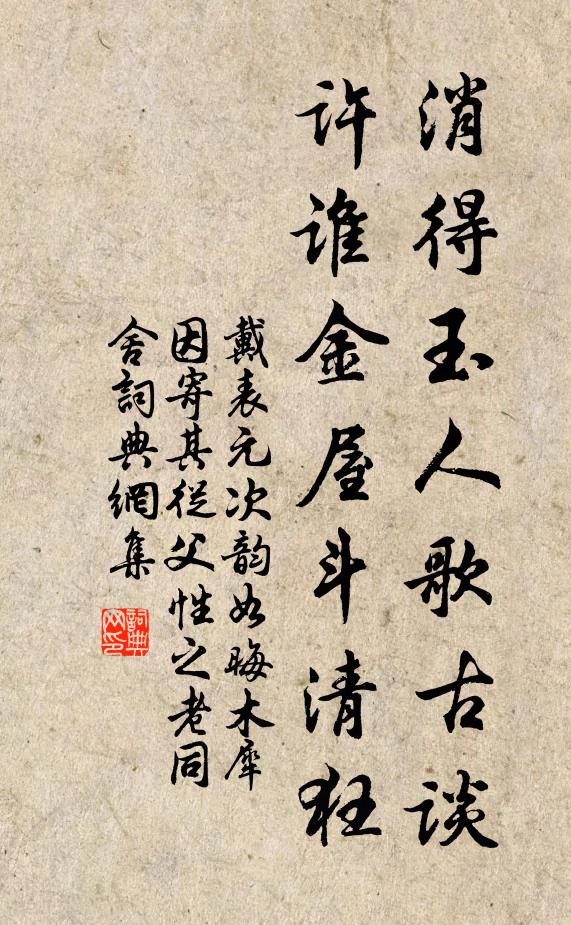 消得玉人歌古談
許誰金屋斗清狂
戴表元次韵如晦木犀
因寄其從父性之老同
舍詞典網集
詞典网印